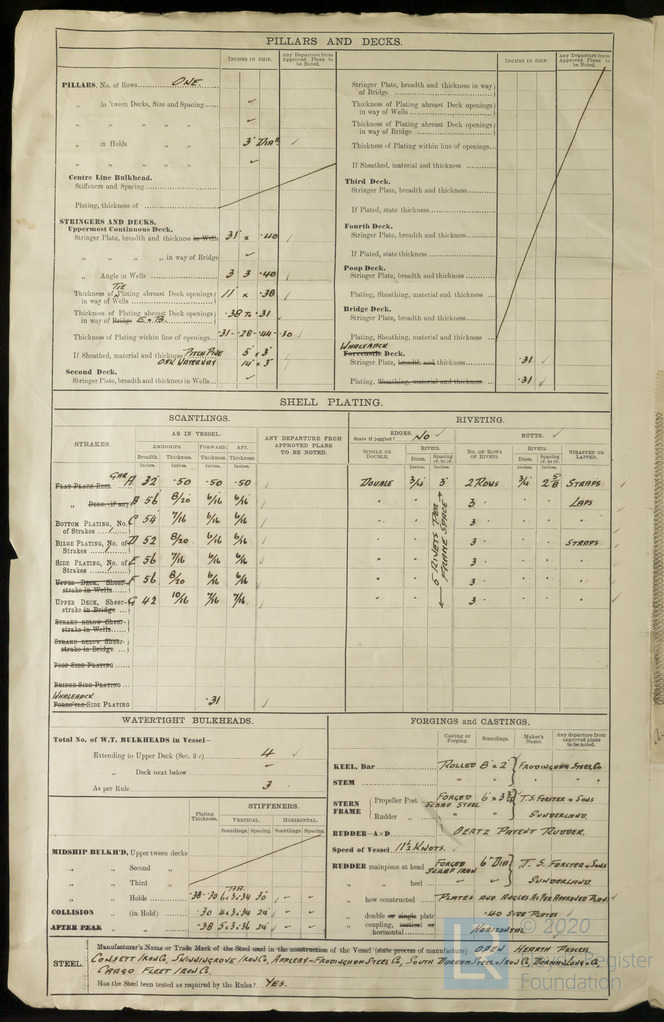 PILLARS AND DECKS.
INCHES IN SHIP.
Any Departure from Approved Plans to be Noted.
PILLARS, No. of Rows ONE.
„ in 'tween Decks, Size and Spacing ✓
„ „ „ „ ✓
„ in Holds „ „ 3" DIAR ✓
„ „ „ „ ✓
Centre Line Bulkhead.
Stiffeners and Spacing
Plating, thickness of
STRINGERS AND DECKS.
Uppermost Continuous Deck.
Stringer Plate, breadth and thickness in Wells 31 x .40 ✓
„ „ „ „ in way of Bridge ✓
„ Angle in Wells 3 3 .40 ✓
Tie
Thickness of Plating abreast Deck openings in way of Wells 11 x .38 ✓
Thickness of Plating abreast Deck openings in way of Bridge E & B. .38 To .31 ✓
Thickness of Plating within line of openings .31-.28-.44-.30 ✓
If Sheathed, material and thickness PITCH PINE 5" x 3"
OAK WATERWAY 14" x 3"
Second Deck.
Stringer Plate, breadth and thickness in Wells ✓
INCHES IN SHIP.
Any Departure from Approved Plans to be Noted.
Stringer Plate, breadth and thickness in way of Bridge
Thickness of Plating abreast Deck openings in way of Wells
Thickness of Plating abreast Deck openings in way of Bridge
Thickness of Plating within line of openings
If Sheathed, material and thickness
Third Deck.
Stringer Plate, breadth and thickness
If Plated, state thickness
Fourth Deck.
Stringer Plate, breadth and thickness
If Plated, state thickness
Poop Deck.
Stringer Plate, breadth and thickness
Plating, Sheathing, material and thickness
Bridge Deck.
Stringer Plate, breadth and thickness
Plating, Sheathing, material and thickness
WHALEBACK
Forecastle Deck.
Stringer Plate, breadth and thickness .31 ✓
Plating, Sheathing, material and thickness .31 ✓
SHELL PLATING.
SCANTLINGS.
RIVETING.
STRAKES.
AS IN VESSEL.
AMIDSHIPS. FORWARD. AFT.
Breadth. Thickness. Thickness. Thickness.
Inches. Inches. Inches. Inches.
ANY DEPARTURE FROM APPROVED PLANS TO BE NOTED.
EDGES.
State if joggled? No ✓
SINGLE OR DOUBLE.
RIVETS.
Diam. Spacing cr. to cr.
Inches. Inches.
BUTTS. ✓
No. OF ROWS OF RIVETS.
RIVETS.
Diam. Spacing cr. to cr.
Inches. Inches.
STRAPPED OR LAPPED.
FLAT PLATE KEEL GAR A 32 .50 .50 .50 DOUBLE 3/4 3" 2 ROWS 3/4 2 5/8 STRAPS
„ Dblg. (if any) B 56 8/20 6/16 6/16 " " 3 " LAPS
BOTTOM PLATING, No. of Strakes C 54 7/16 6/16 6/16 " " 3 "
BILGE PLATING, No. of Strakes D 52 8/20 6/16 6/16 " " 3 " STRAPS
SIDE PLATING, No. of Strakes E 56 7/16 6/16 6/16 " " 3 "
UPPER DECK, Sheerstrake in Wells F 56 8/20 6/16 6/16 " " 3 "
UPPER DECK, Sheerstrake in Bridge G 42 10/16 7/16 7/16 " " 3 "
6 RIVETS PER FRAME SPACE
STRAKE BELOW Sheerstrake in Wells
STRAKE BELOW Sheerstrake in Bridge
POOP SIDE PLATING
BRIDGE SIDE PLATING
WHALEBACK
FORECASTLE SIDE PLATING .31
WATERTIGHT BULKHEADS.
Total No. of W.T. BULKHEADS in Vessel—
Extending to Upper Deck (Sec. 3 c) 4
„ Deck next below ✓
As per Rule 3
Plating Thickness.
STIFFENERS.
VERTICAL. HORIZONTAL.
Scantlings. Spacing. Scantlings. Spacing.
MIDSHIP BULKH'D, Upper tween decks
„ „ Second „
„ „ Third „
„ „ Holds .38-.30 6.3.34 30" - -
COLLISION „ (in Hold) .30 4.3.34 24" - -
AFTER PEAK „ „ .38 5.3.36 24" - -
FORGINGS AND CASTINGS.
Casting or Forging. Scantlings. Maker's Name. Any departure from approved plans to be noted.
KEEL, Bar ROLLED 8" x 2" FRODINGHAM STEEL Co
STEM " " " "
STERN FRAME
Propeller Post FORGED SCRAP STEEL 6" x 3 3/4 T. S. FORSTER & SONS
Rudder „ " " SUNDERLAND.
RUDDER—A×D OERTZ PATENT RUDDER.
Speed of Vessel 11½ KNOTS.
RUDDER mainpiece at head FORGED SCRAP IRON 6" DIA T. S. FORSTER & SONS
„ „ heel ✓ SUNDERLAND.
„ how constructed PLATES AND ANGLES AS PER APPROVED PLAN.
„ double or single plate .40 SIDE PLATES
„ coupling, vertical or horizontal HORIZONTAL
STEEL.
Manufacturer's Name or Trade Mark of the Steel used in the construction of the Vessel (state process of manufacture) OPEN HEARTH PROCESS
CONSETT IRON Co, SKINNINGROVE IRON Co, APPLEBY-FRODINGHAM STEEL Co, SOUTH DURHAM STEEL & IRON Co,
CARGO FLEET IRON Co.
Has the Steel been tested as required by the Rules? YES.
© 2020
Lloyd's Register
Foundation